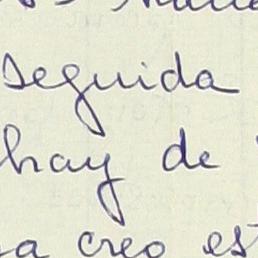 seguida
hay de
creo